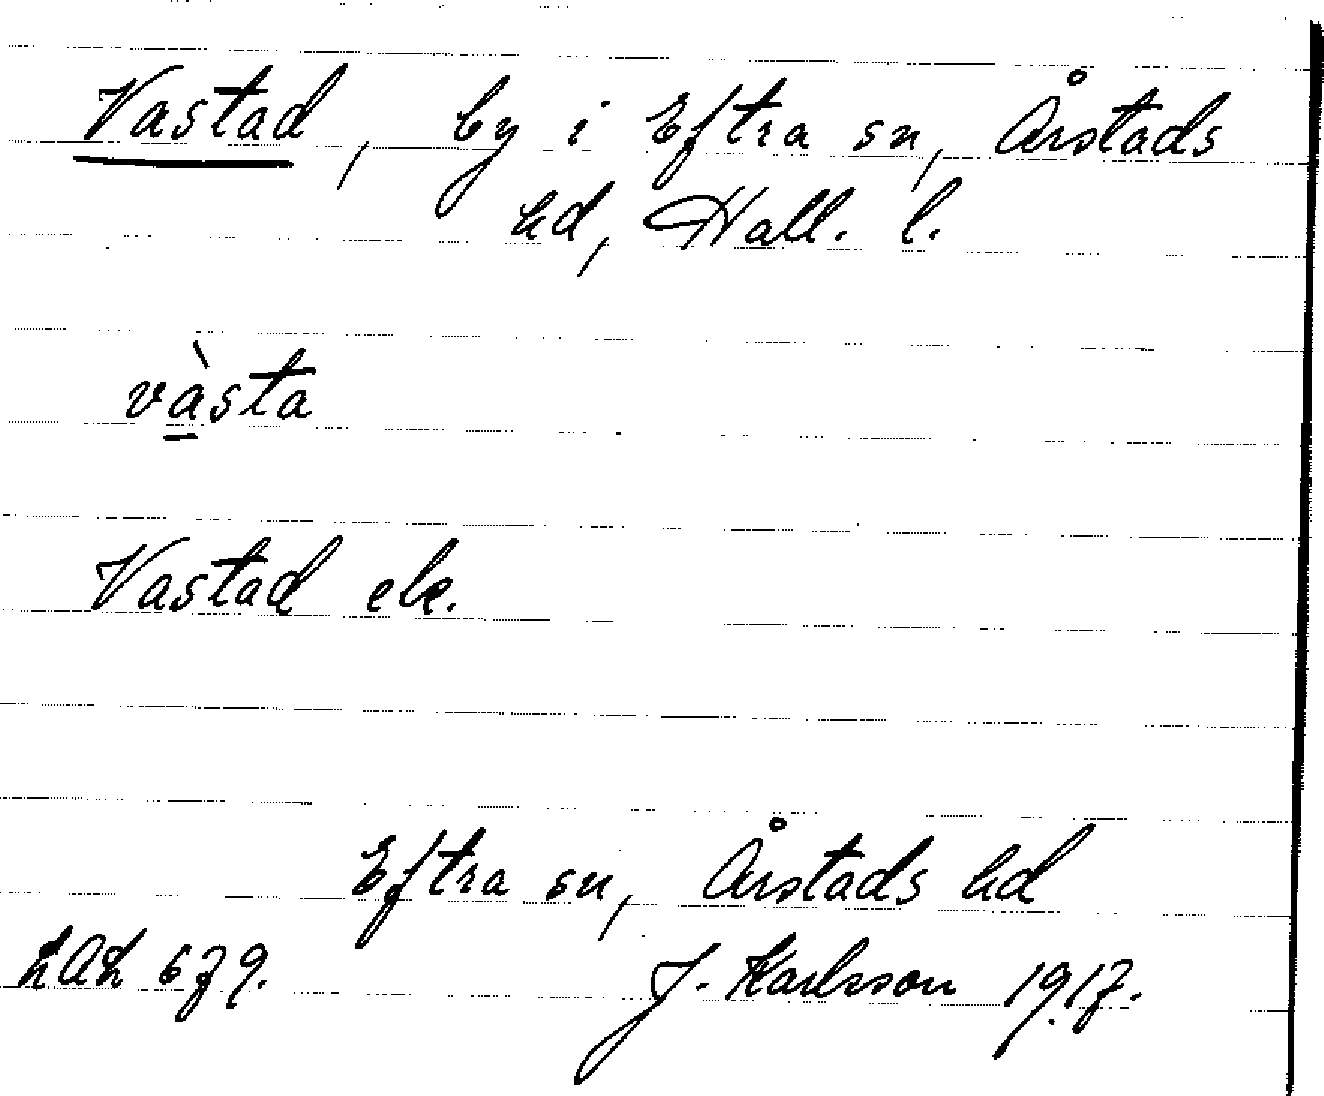 Vastad, by i Eftra sn, Årstads
hd, Hall. l.
và̲sta
Vastad ek.
Eftra sn, Årstads hd
LAL 679.
J. Karlsson 1917.